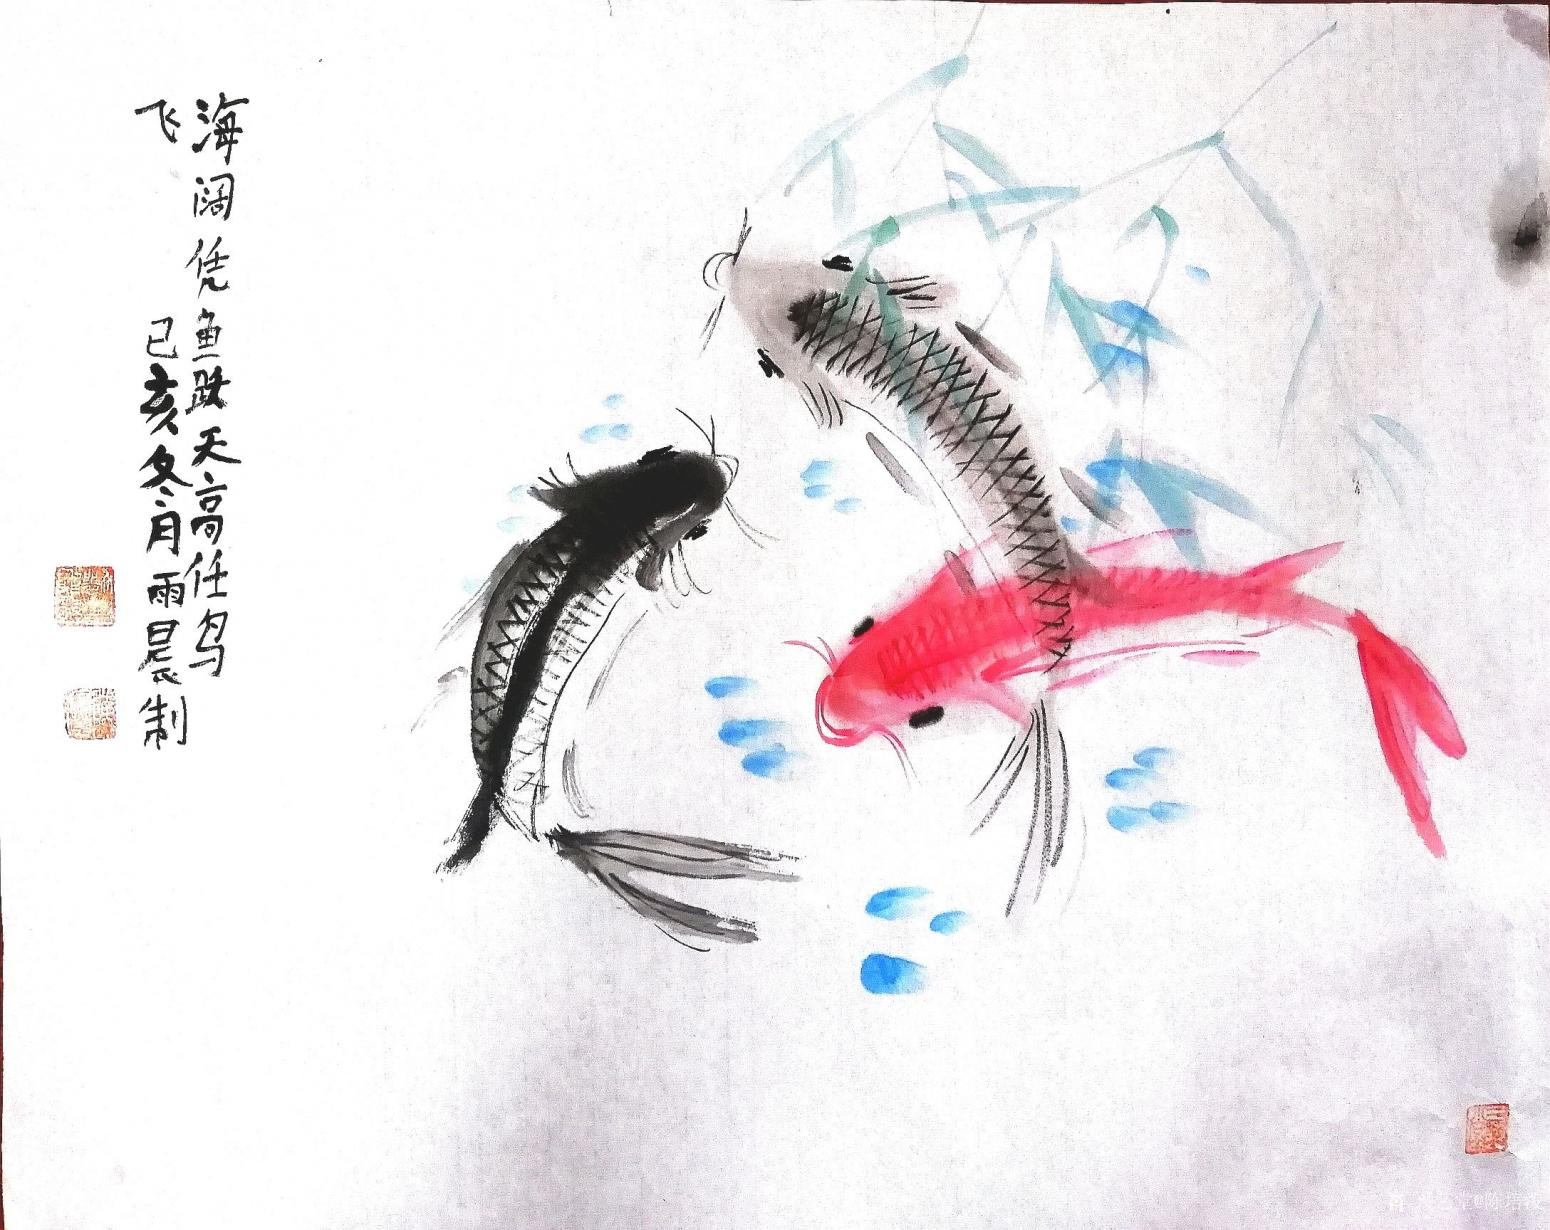 海阔凭鱼跃天高任鸟
飞
己亥冬月雨晨制